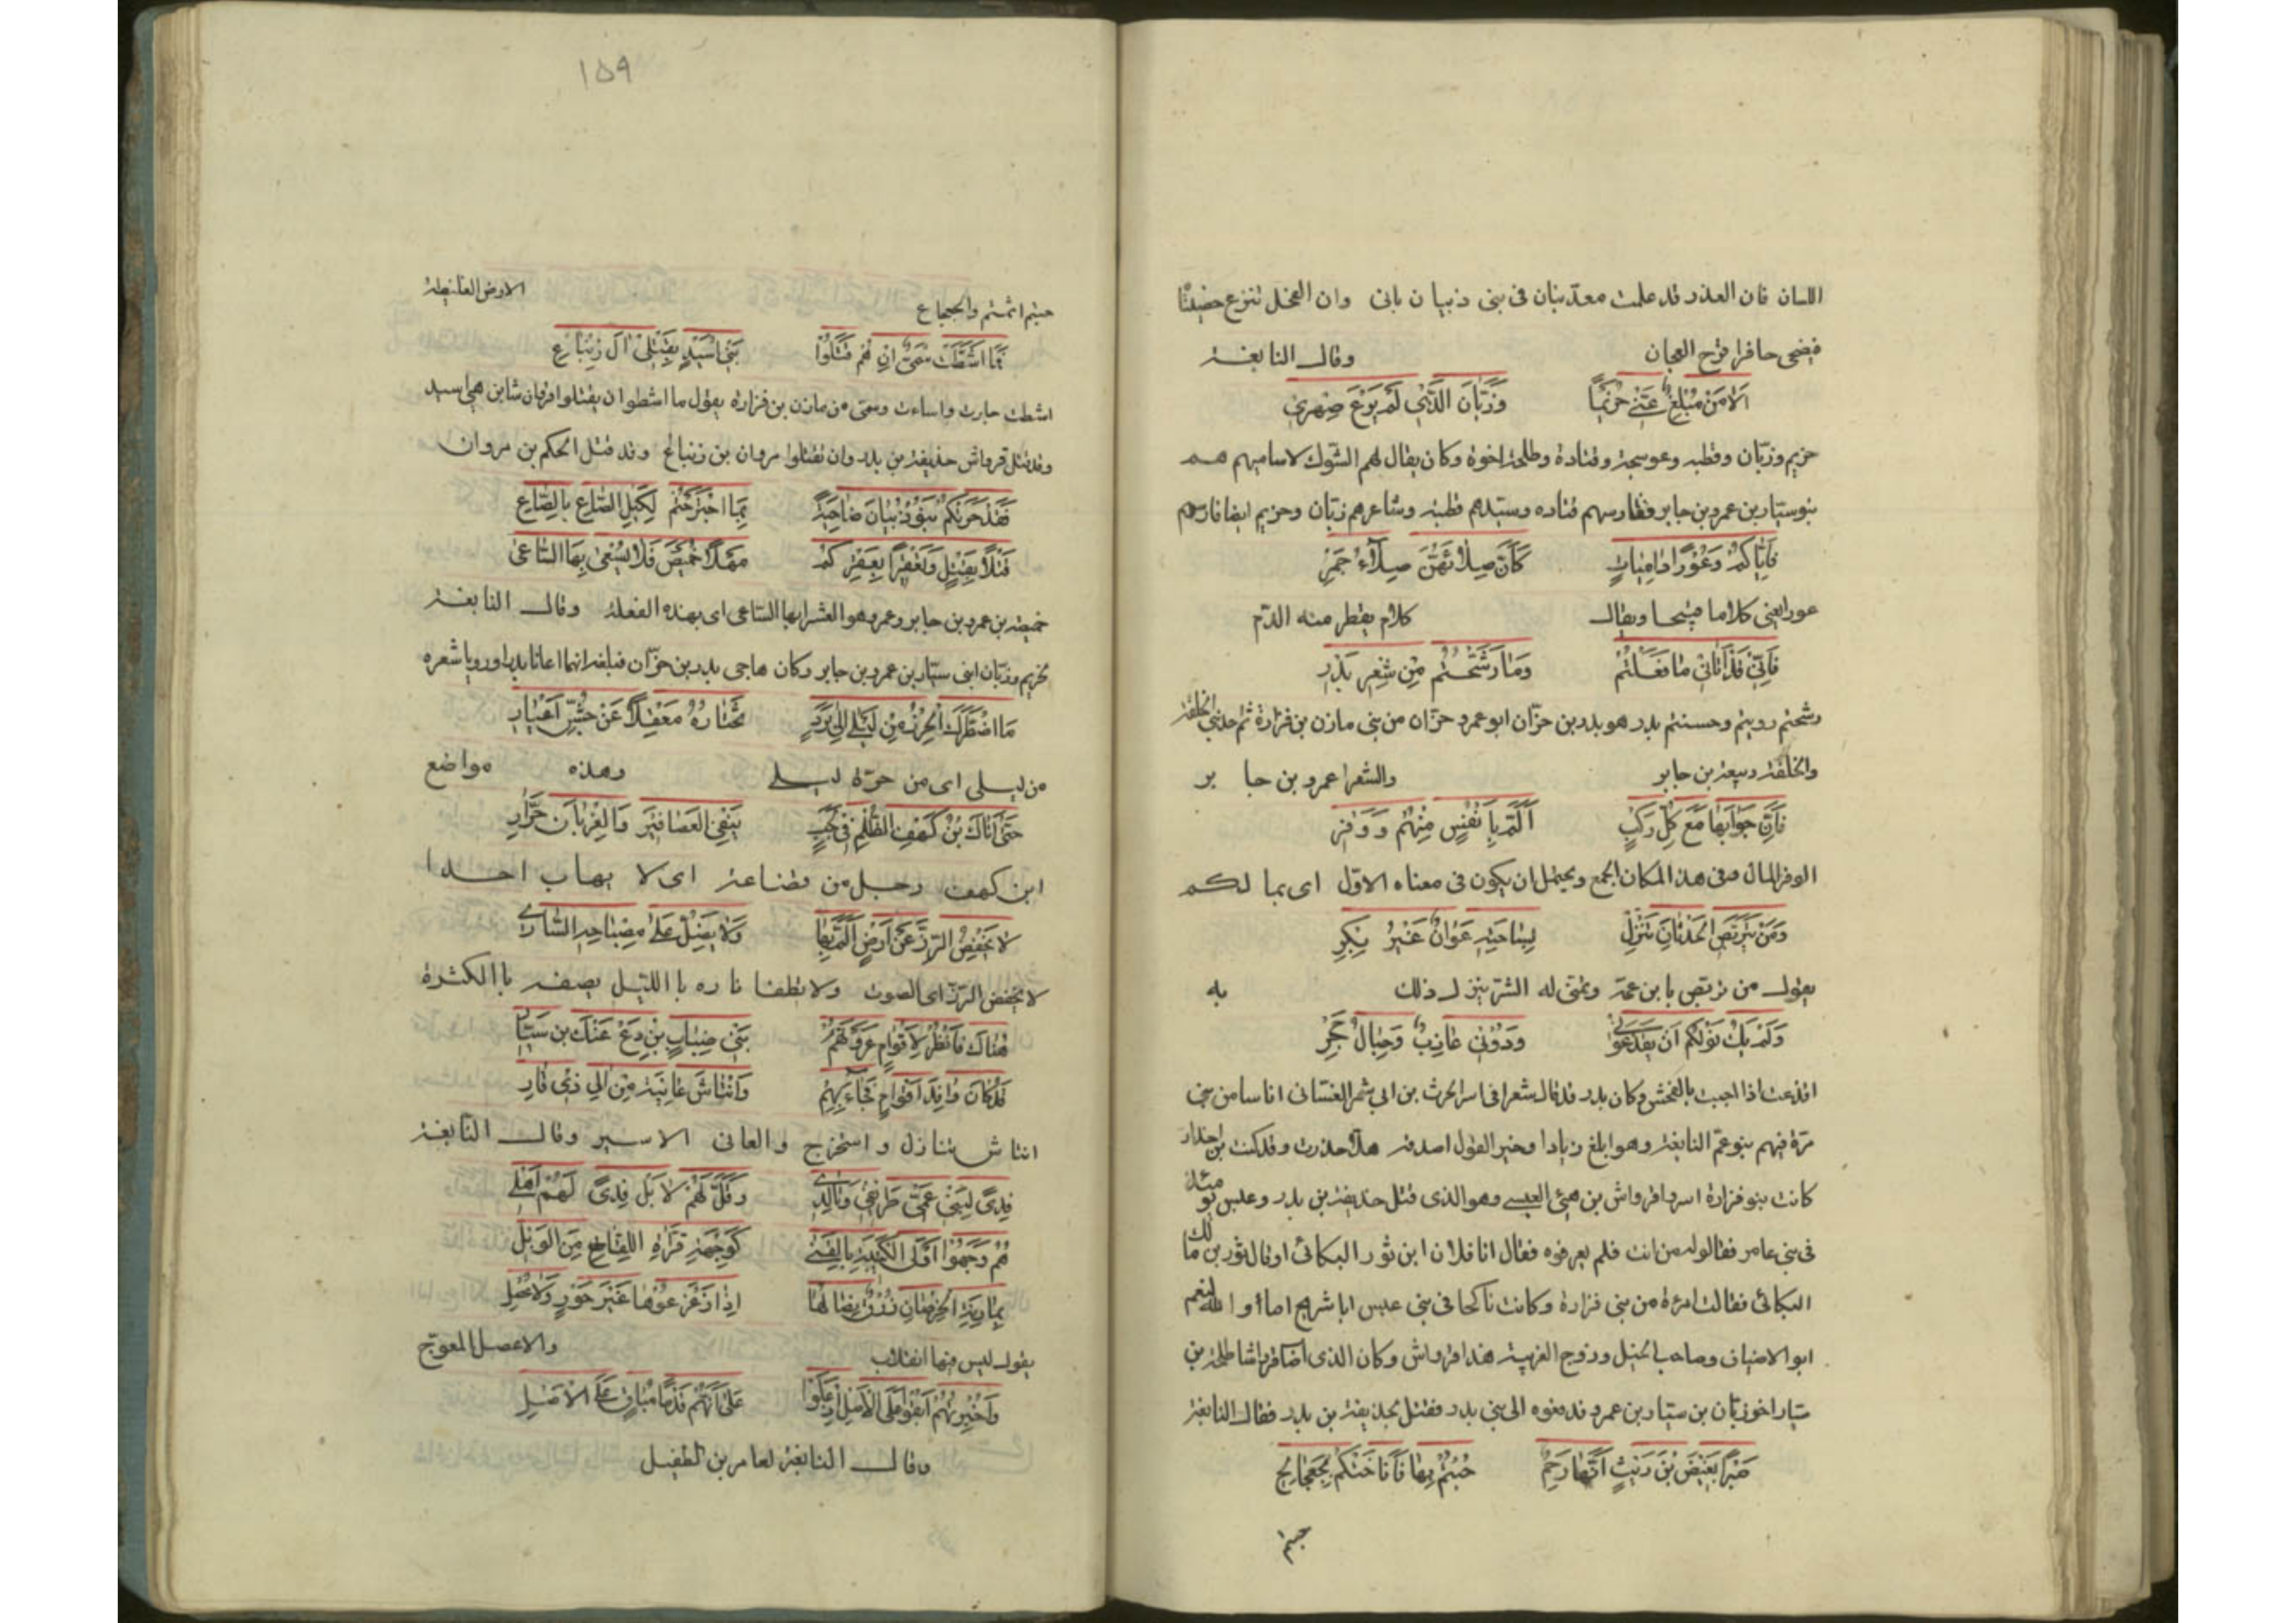 اللسان فان الغدر قد علمت معدّ بنان فى بنى ذبيان بانى وان الفحل تنزع خصيتا
فيضحى حافرا قرح العجان وقال النابغة
الا من مبلغ عنّى خزيما وزبّان الذى لم يرع صهرى
خزيم وزبّان وقطبه وعوسجة وقتادة وطلحة اخوة وكان يقال لهم الشوك لاساميهم هم
بنو سيار بن عمرو بن جابر وفارسهم قتاده وسيدهم قطبه وشاعرهم زبّان وخزيم ايضا فارسهم
فايّاكم وعورا داميات كأن صلاءهنّ صلاء جمر
عورا يعنى كلاما قبيحا ويقال كلام يقطر منه الدّم
فانّى قد اتانى ما فعلتم وما رشّحتم من شعر بدر
رشحتم رويتم وحسنتم بدر هو بدر بن حزّان ابو عمرو حزّان من بنى مازن بن فزارة ثم احد بنى الخلفة
والخلفة ربيعة بن جابر والشعرا عمرو بن جابر
فانّ جوابها مع كلّ ركب المّ بانفس منهم ووفر
الوفر المال وفى هذا المكان الجمع ويحتمل ان يكون فى معناه الاوّل اى بما لكم
ومن يتربّص الحدثان تنزل بساحته عوان غير بكر
يقول من تربّص بابن عمّه وتمنّى له الشر ينزل ذلك به
ولم يك نولكم ان يقدعونى ودونى عازب وجبال حجر
اقذعت اذا اجبت بالفحش وكان بدر قد قال شعرا فى اسر الحرث بن ابى شمر الغسّانى اناسا من بنى
مرّة فيهم بنو عمّ النابغة وهو ابلغ زيادا وخير القول اصدقه هلّا حذرت وقد كنت بن احذار
كانت بنو فزارة اسروا قرواش بن هنّى العبسى وهو الذى قتل حذيفة بن بدر وعبس نومئذ
فى بنى عامر فقالوا له من انت فلم يعرفوه فقال انا فلان ابن ثور البكائى او قال ثور بن مالك
البكائى فقالت امرءة من بنى فزارة وكانت ناكحا فى بنى عبس ابا شريح اما والله لنعم
ابو الاضياف وصاحب الخيل وزوج الغريبة هذا قرواش وكان الذى اصاب قرواشا طلحة بن
سيّار اخو زبّان بن سيّار بن عمرو فدفعوه الى بنى بدر فقتل بحذيفة بن بدر فقال النابغة
صبرا بغيض بن ريث انّها رحم حبتم بها فاناختكم بجعجاع
حبتم
١٥٩
حبتم اثمتم والجعجاع الارض الغليظة
فما اشطّت سمىّ ان هم قتلوا بنى اسيد بقتلى آل زنباع
اشطت جارت واساءت وسمى من مازن بن فزارة يقول ما اشطوا ان يقتلوا قرواشا بن هنى اسيد
وقد قتل قرواش حذيفة بن بدر وان تقتلوا مروان بن زنباع وقد قتل الحكم بن مروان
فقد جزتكم بنو ذبيان ضاحية بما اجترحتم لكيل الصّاع بالصّاع
قتلا بقتل وعقرا بعقركم مهلا خميص فلا يسعى بها السّاعى
خميصة بن عمرو بن جابر وعمرو هو العشرا بها السّاعى اى بهذه الفعلة وقال النابغة
لخزيم وزبّان ابنى سيّار بن عمرو بن جابر وكان هاجى بدر بن حزّان فبلغه انهما اعانا بدرا ورويا شعره
ما اضطرّك الحرز من ليلى الى برد تختاره معقلا عن جشّ اعيار
من ليلى اى من حرّة ليلى وهذه مواضع
حتّى اتاك بن كهف الظّلم فى لجب ينفى العصافير والغربان جرّار
ابن كهف رجل من قضاعة اى لا يهاب احدا
لا يخفض الرّزّ عن ارض المّ بها ولا يضلّ على مصباحه السّارى
لا يخفض الرّزّ اى الصوت ولا يطفا ناره باالليل يصفه باالكثرة
هناك فانظر لاقوام عروا لهم بنى ضباب بن دع عنك بن سيّار
قد كان وافد اقوام فجاء بهم وانتاش عانيه من آل ذى قار
انتاش تناول واستخرج والعانى الاسير وقال النابغة
فدى لبنى عمّى طريفى وتالدى وقلّ لهم لا بل فدى لهم اهلى
هم وجّهوا اولى الكتيبة بالقنى كوجهة قرّاء اللقاح من الوبل
بماريّة الخرصان زرق نصالها اذا زعزعوها غير خور ولا عصل
يقول ليس فيها انقلاب والاعصل المعوّج
وقال النابغة لعامر بن الطفيل